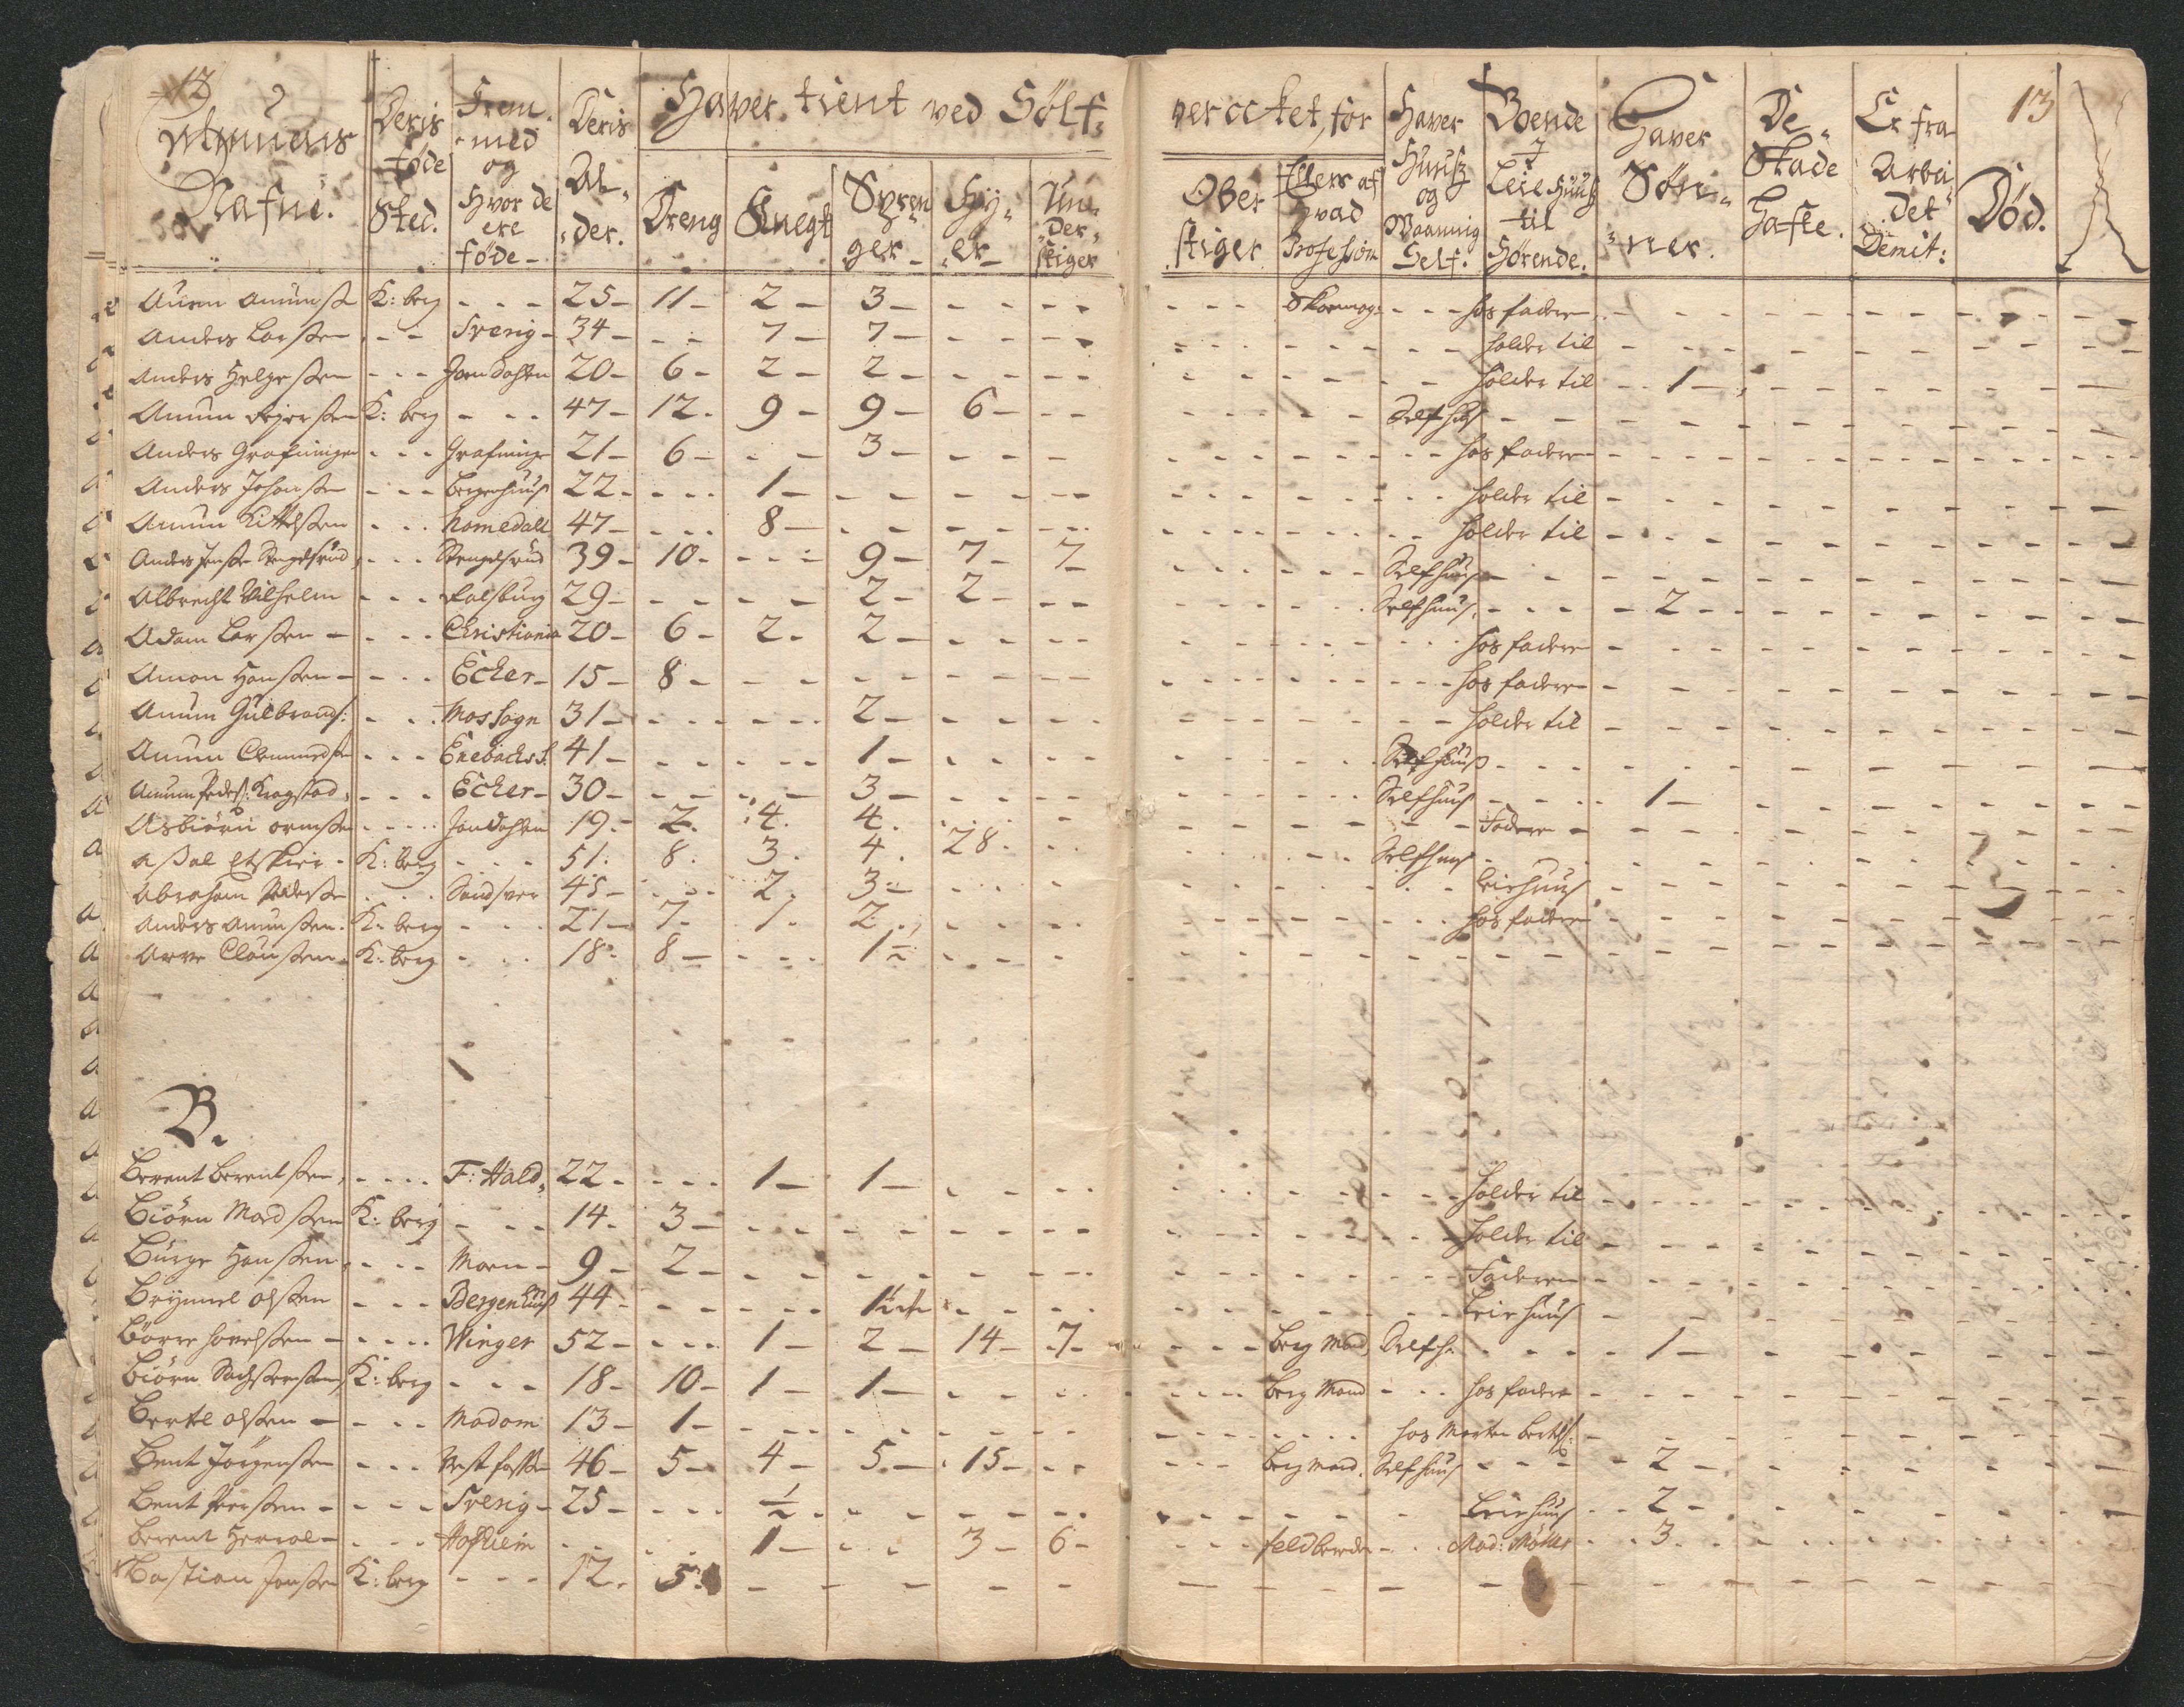 12
13
Mynnens Nafne.
Deris føde Sted.
Frem-med og Hvor de ere føde
Deris Al-der.
Haver tient ved Sølf-vercket, for
Dreng
Knegt
Spren-ger
Hÿ-er
Un-der-stiger
Ober stiger
Ellers af hvad Profession
Haver Huuß og Waaning Self.
Boende I Leie Huuß til Hørende.
Haver Søn-ner.
De Skade Hafte.
Er fra Arbei det Demit:
Død.
K: berg 25 11 2 3 hos faderen
Anders Larsen Sverig 34 7 7 holder til
Anders Helgesen Jondahlen 20 6 2 2 holder til 1
Amun K: berg 47 12 9 9 6 Self huus
Anders Grafningen Grafninge 21 6 3 hos faderen
Anders Johansen Bergenhuus 22 1 holder til
Amun Kittelsen Nomedall 47 8 holder til
Anders Jensen Stengelsrud Stengelsrud 39 10 9 7 7 Self huus
Albrecht Vilhelm Falsburg 29 2 2 Self huus 2
Adam Larsen Christiania 20 6 2 2 hos faderen
Amon Hansen Ecker 15 8 hos faderen
Amun Gulbrands: Mos Sogn 31 2 holder til
Amun Clemmedsen Enebachs S. 41 1 Self huus
Amun Peders: Kragstad Ecker 30 3 Self huus 1
Asbiørn ormsen Jondahlen 19 2 4 4 Faderen
K: berg 51 8 3 4 28 Self huus
Abraham Pedersen Sandsver 45 2 3 Leie huus
Anders Amunsen K: berg 21 7 1 2 hos faderen
Arve Clausen K: berg 18 8 1½
B.
Berent Berentsen F: Hald 22 1 1 holder til
Biørn Madsen K: berg 14 3 holder til
Børge Hansen Moen 9 2 Faderen
Brynnel olsen Bergenhuus 44 1½ Leie huus
Børre Hovelsen Winger 52 1 2 14 7 Berg Mand Self h. 1
Biørn K: berg 18 10 1 1 Berg Mand hos fadern
Bertel olsen Modom 13 1 hos Morten Bertels:
Bent Jørgensen Vestfossen 46 5 4 5 15 Berg mand Self huus 2
Bent Persen Sverig 25 ½ Leie huus 2
Berent 1 3 6 feldbereder Mad: Møller 3
Bastian Jansen K: berg 12 5